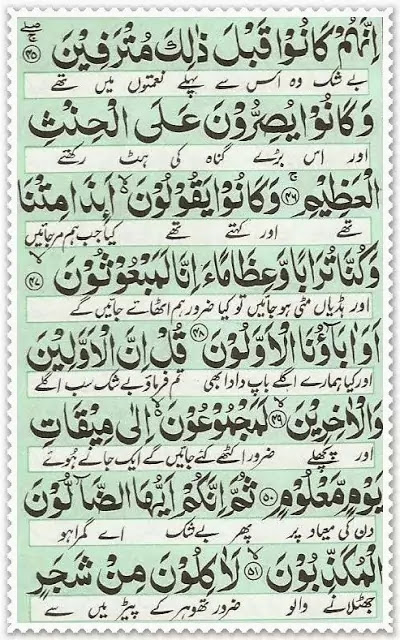 اِنَّهُمْ كَانُوْا قَبْلَ ذٰلِكَ مُتْرَفِيْنَ ۚۖ ﴿۴۵﴾
بے شک وہ اس سے پہلے نعمتوں میں تھے
وَكَانُوْا يُصِرُّوْنَ عَلَى الْحِنْثِ
اور اس بڑے گناہ کی ہٹ رکھتے
الْعَظِيْمِ ۚ ﴿۴۶﴾ وَكَانُوْا يَقُوْلُوْنَ ۙ اَئِذَا مِتْنَا
تھے اور کہتے تھے کیا جب ہم مرجائیں
وَكُنَّا تُرَابًا وَّعِظَامًا ءَاِنَّا لَمَبْعُوْثُوْنَ ۙ ﴿۴۷﴾
اور ہڈیاں مٹی ہو جائیں تو کیا ضرور ہم اٹھائے جائیں گے
اَوَاٰبَآؤُنَا الْاَوَّلُوْنَ ﴿۴۸﴾ قُلْ اِنَّ الْاَوَّلِيْنَ
اور کیا ہمارے اگلے باپ دادا بھی تم فرماؤ بے شک سب اگلے
وَالْاٰخِرِيْنَ ۙ ﴿۴۹﴾ لَمَجْمُوْعُوْنَ ۙ اِلٰى مِيْقَاتِ
اور پچھلے ضرور اکٹھے کئے جائیں گے ایک جانے ہوئے
يَوْمٍ مَّعْلُوْمٍ ﴿۵۰﴾ ثُمَّ اِنَّكُمْ اَيُّهَا الضَّآلُّوْنَ
دن کی میعاد پر پھر بے شک اے گمراہو
الْمُكَذِّبُوْنَ ۙ ﴿۵۱﴾ لَاٰكِلُوْنَ مِنْ شَجَرٍ
جھٹلانے والو ضرور تھوہر کے پیڑ میں سے